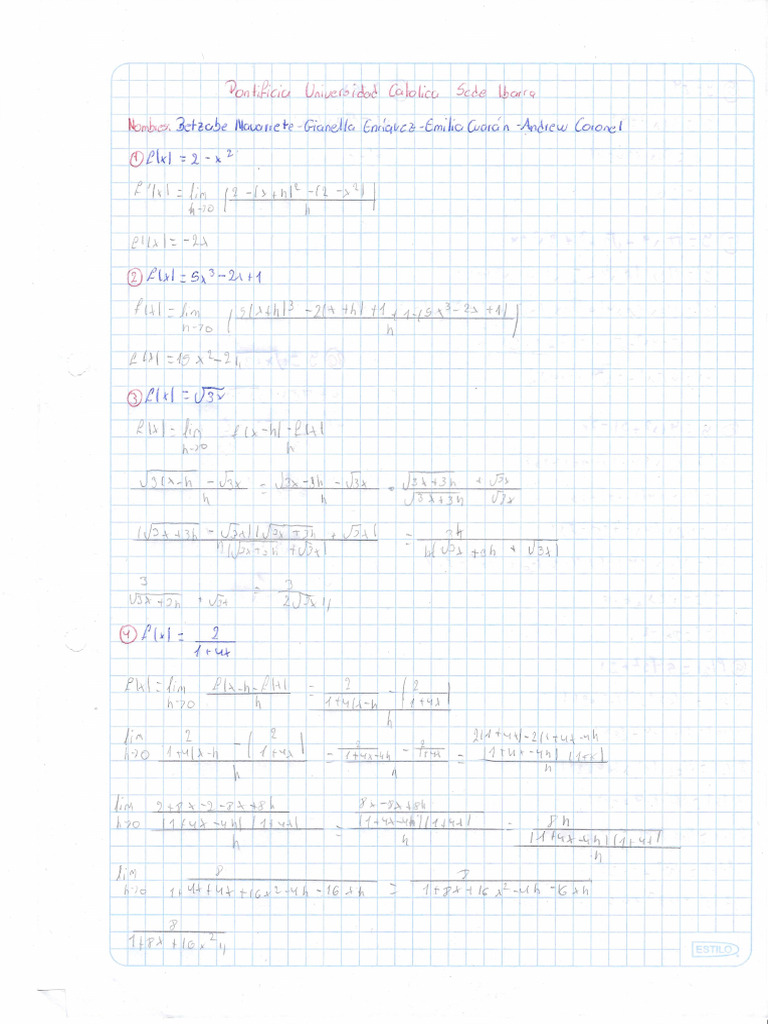 Pontificia Universidad Catolica Sede Ibarra
Nombres: Betzabe Navarrete - Gianella Enríquez - Emilia Cuarán - Andrew Coronel
① f(x) = 2 - x²
f'(x) = lim h→0 (2 - (x + h)² - (2 - x²)) / h
f'(x) = -2x
② f(x) = 5x³ - 2x + 1
f(x) = lim h→0
f(x) = 15x² - 2
③ f(x) = √3x
f(x) = lim h→0 f(x - h) - f(x) / h
√3(x - h - √3x / h = √3x - 3h - √3x / h = √3x + 3h + √3x / √3x + 3h √3x
(√3x + 3h - √3x)(√3x + 3h + √3x) / h(√3x + 3h + √3x) = 3h / h(√3x + 3h + √3x)
3 / √3x + 3h + √3x = 3 / 2√3x
④ f(x) = 2 / 1 + 4x
f(x) = lim h→0 f(x - h - f(x) / h = 2 / 1 + 4(x - h - (2 / 1 + 4x) / h
lim h→0 2 / 1 + 4(x - h - (2 / 1 + 4x) / h = 2 / 1 + 4x - 4h - 2 / 1 + 4x / h = 2(1 + 4x) - 2(1 + 4x - 4h / (1 + 4x - 4h) (1 + x) / h
lim h→0 2 + 8x - 2 - 8x + 8h / (1 + 4x - 4h) (1 + 4x) / h = 8x - 8x + 8h / (1 + 4x - 4h)(1 + 4x) / h = 8h / (1 + 4x - 4h)(1 + 4x) / h
lim h→0 8 / 1 + 4x + 4x + 16x² - 4h - 16xh = 8 / 1 + 8x + 16x² - 4h - 16xh
8 / 1 + 8x + 16x²
ESTILO